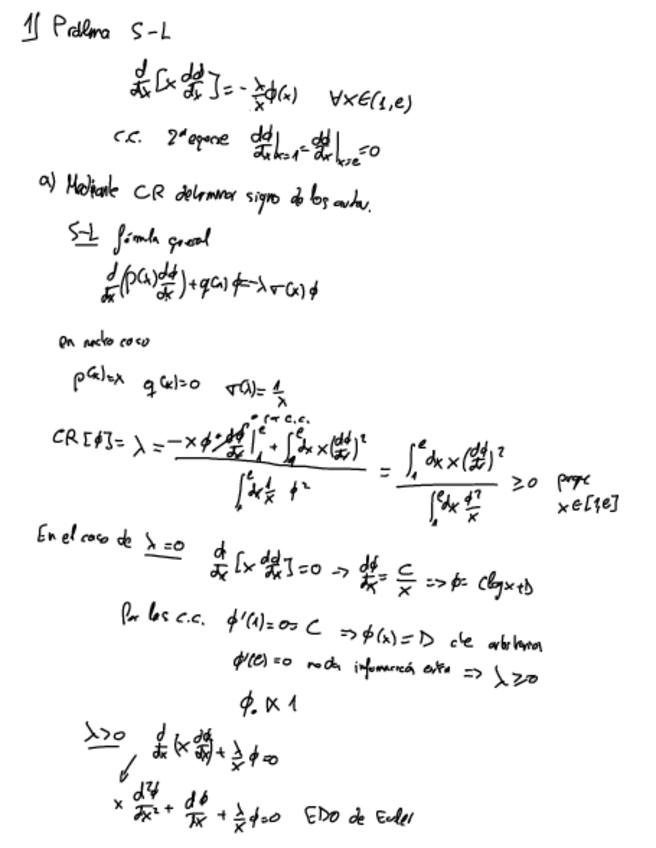 1) Problema S-L
d/dx [x dϕ/dx] = - λ/x ϕ(x) ∀x∈(1,e)
c.c. 2ª especie dϕ/dx|x=1 = dϕ/dx|x=e = 0
a) Mediante CR determinar signo de los autov.
S-L fórmula general
d/dx (p(x) dϕ/dx) + q(x) ϕ = -λ σ(x) ϕ
en nuestro caso
p(x)=x q(x)=0 σ(x)= 1/x
CR[ϕ] = λ = (-x ϕ · dϕ/dx |₁ᵉ + ∫₁ᵉ dx x (dϕ/dx)²) / (∫₁ᵉ dx 1/x ϕ²) = (∫₁ᵉ dx x (dϕ/dx)²) / (∫₁ᵉ dx ϕ²/x) ≥ 0 x∈[1,e]
En el caso de λ=0 d/dx [x dϕ/dx] = 0 → dϕ/dx = C/x ⇒ ϕ = C log x + D
Por las c.c. ϕ'(1)=0= C ⇒ ϕ(x) = D cte arbitraria
ϕ'(e)=0 nada información extra ⇒ λ≥0
ϕ₀ ∝ 1
λ>0 d/dx (x dϕ/dx) + λ/x ϕ = 0
x d²ϕ/dx² + dϕ/dx + λ/x ϕ = 0 EDO de Euler